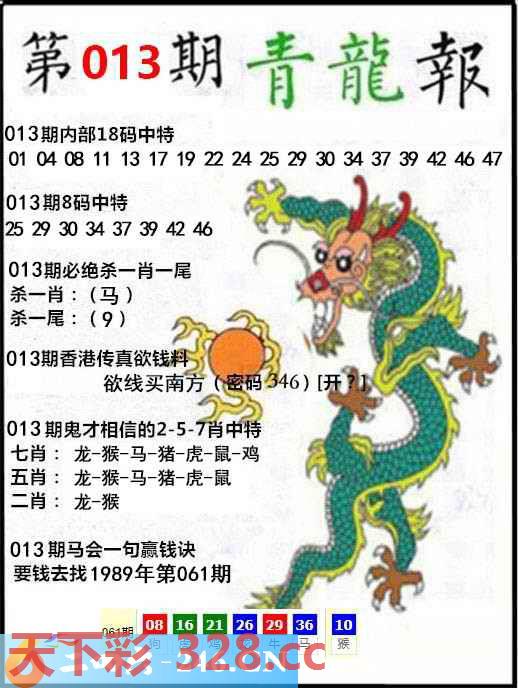 第013期青龍報
013期内部18码中特
01 04 08 11 13 17 19 22 24 25 29 30 34 37 39 42 46 47
013期8码中特
25 29 30 34 37 39 42 46
013期必绝杀一肖一尾
杀一肖：（马）
杀一尾：（9）
013期香港传真欲钱料
欲线买南方（密码346）[开？]
013期鬼才相信的2-5-7肖中特
七肖： 龙-猴-马-猪-虎-鼠-鸡
五肖： 龙-猴-马-猪-虎-鼠
二肖： 龙-猴
013期马会一句赢钱诀
要钱去找1989年第061期
061期 08 16 21 26 29 36 10
狗 虎 鸡 牛 马 猴
天下彩-328.cc